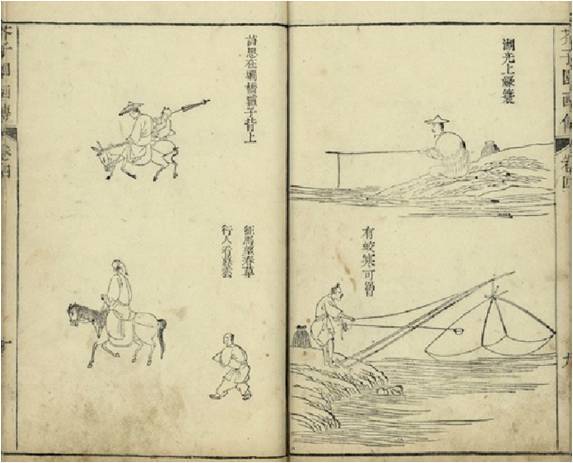 芥子園畫傳 卷四
九
湖光上綠蓑
有蛟寒可罾
詩思在灞橋驢子背上
征馬望春草
行人看暮雲
芥子園畫傳 卷四
十